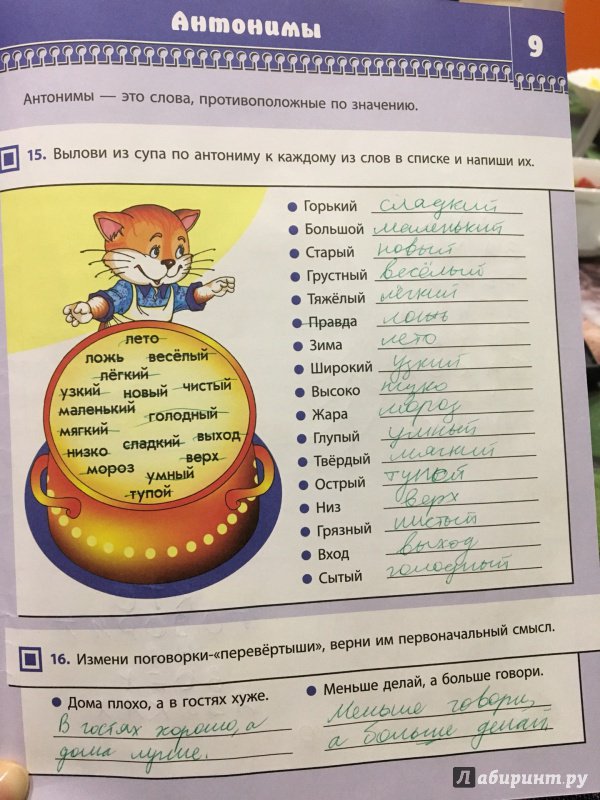 Антонимы
9
Антонимы — это слова, противоположные по значению.
15. Вылови из супа по антониму к каждому из слов в списке и напиши их.
лето
ложь весёлый
лёгкий
узкий новый чистый
маленький голодный
мягкий
низко сладкий выход
мороз верх
умный
тупой
Горький сладкий
Большой маленький
Старый новый
Грустный весёлый
Тяжёлый лёгкий
Правда ложь
Зима лето
Широкий узкий
Высоко низко
Жара мороз
Глупый умный
Твёрдый мягкий
Острый тупой
Низ верх
Грязный чистый
Вход выход
Сытый голодный
16. Измени поговорки-«перевёртыши», верни им первоначальный смысл.
Дома плохо, а в гостях хуже.
В гостях хорошо, а
дома лучше.
Меньше делай, а больше говори.
Меньше говори,
а больше делай
Лабиринт.ру